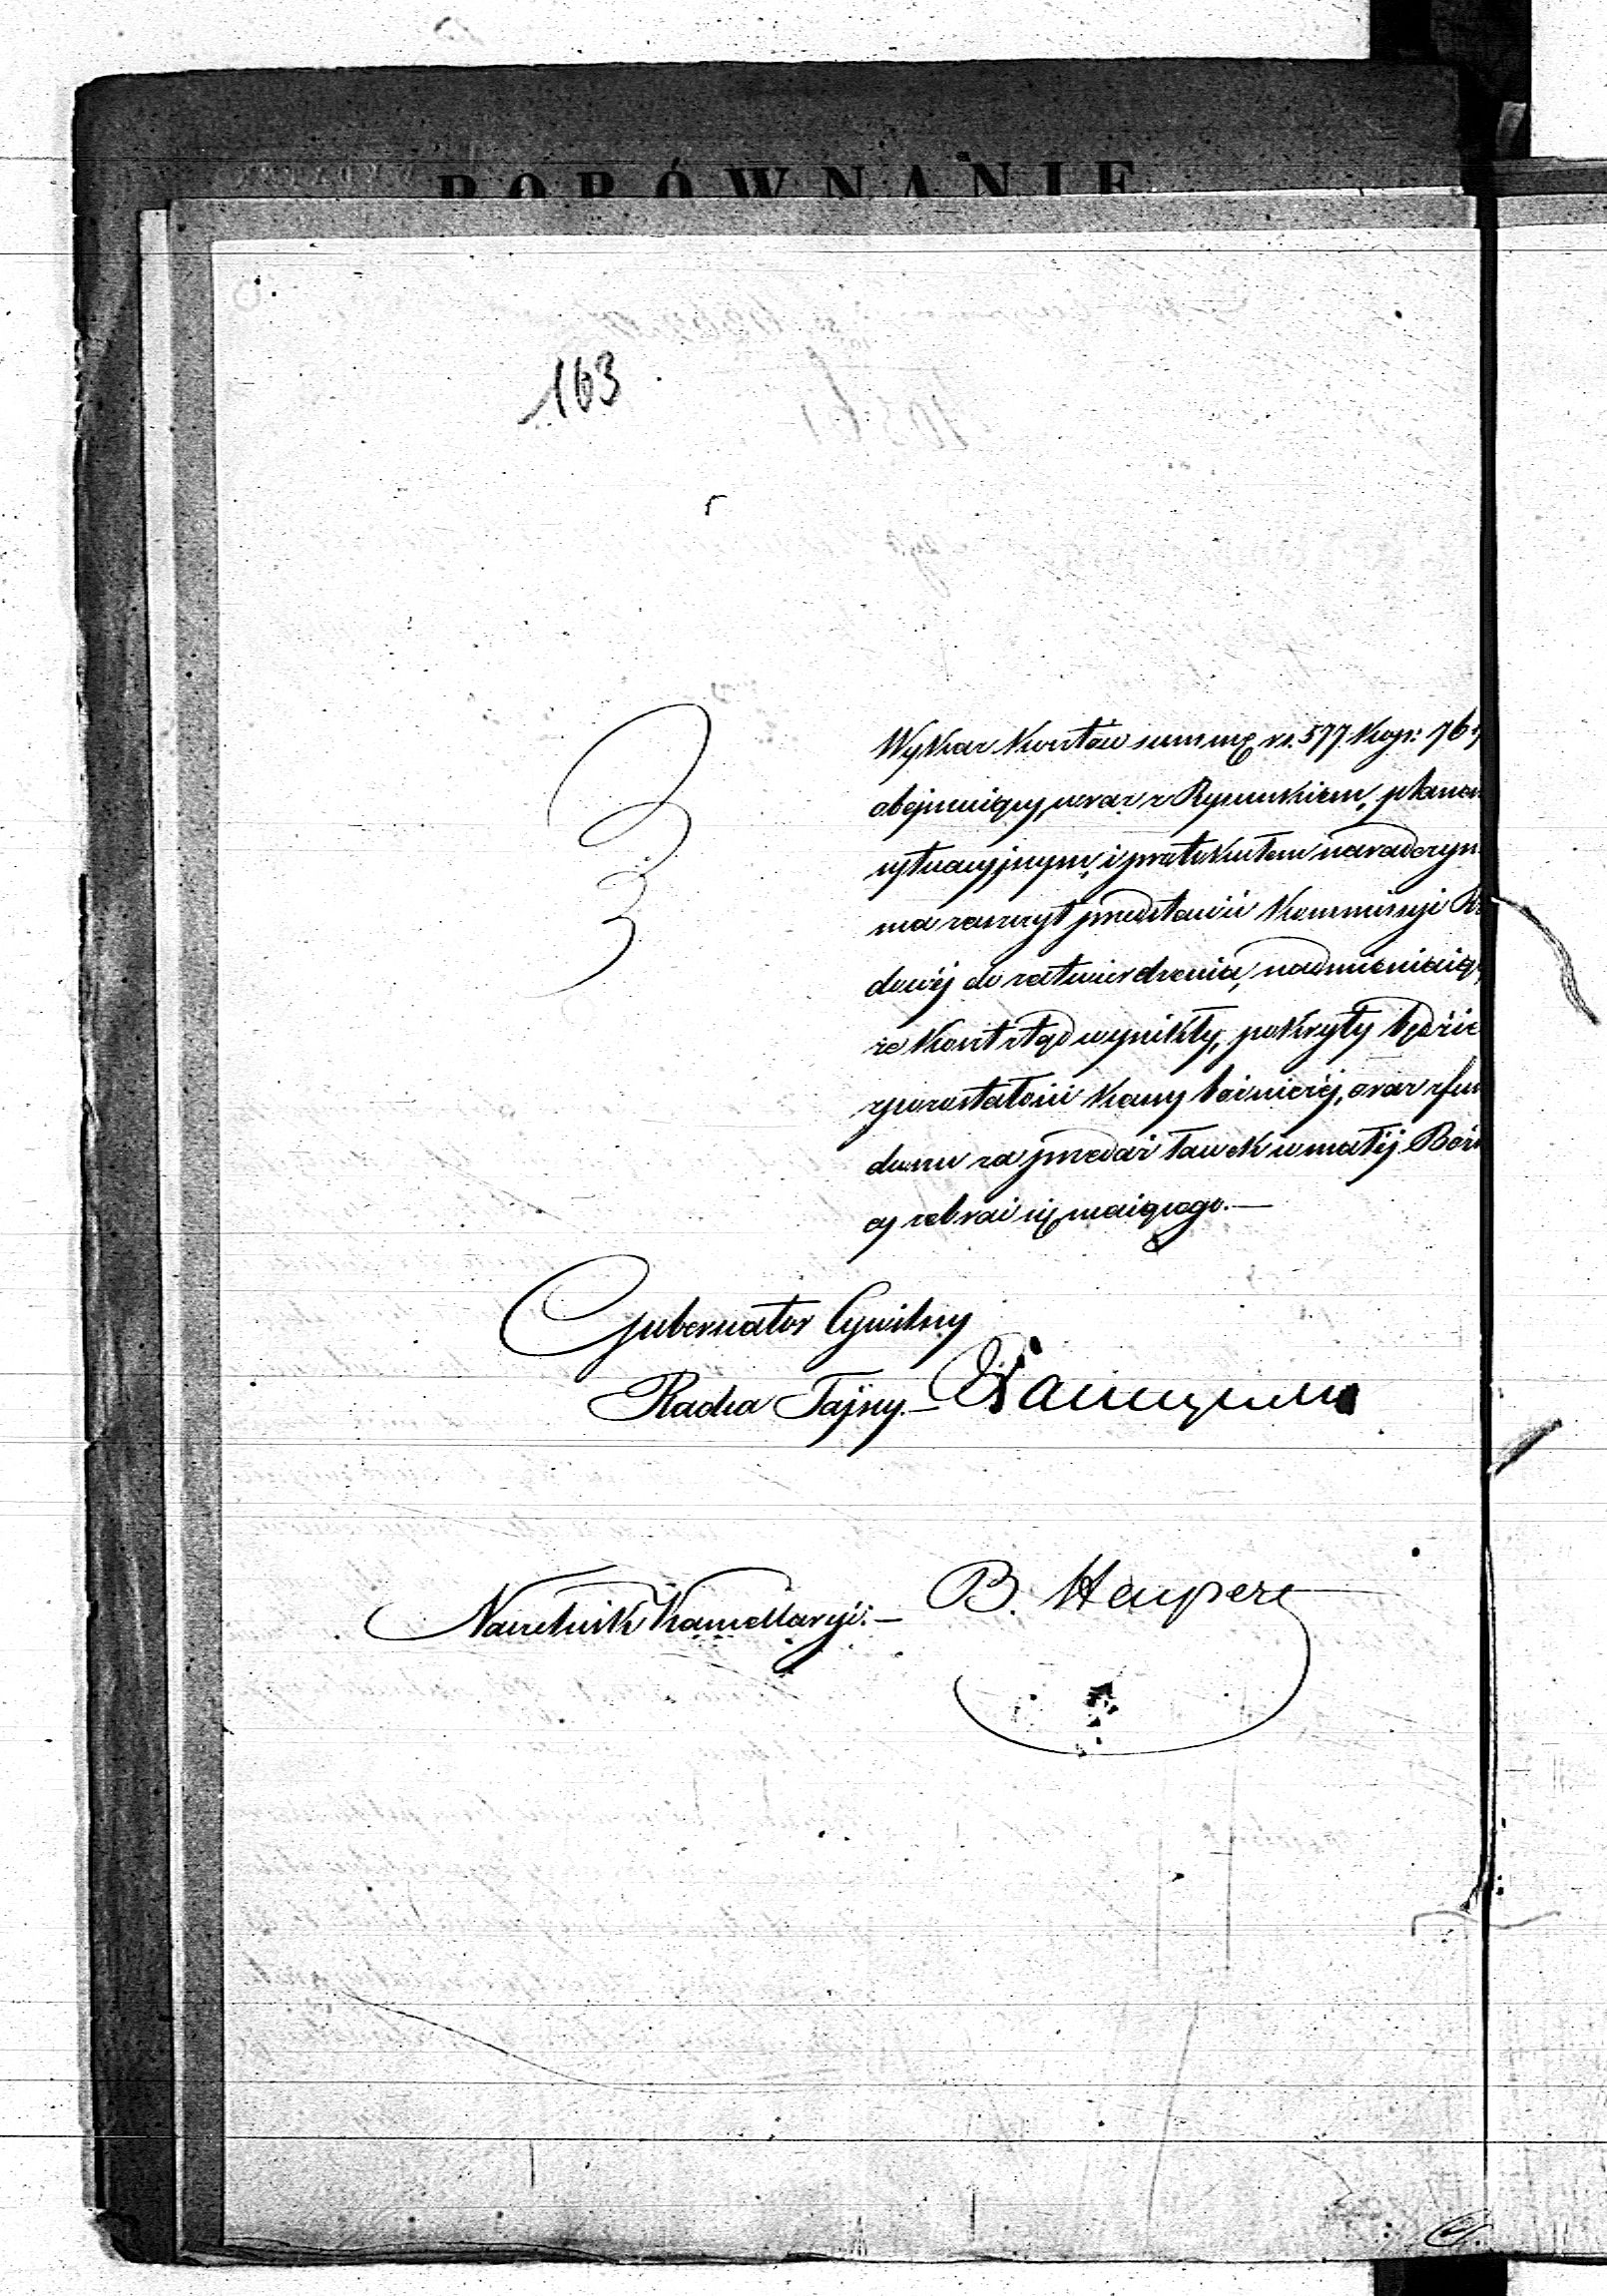 PORÓWNANIE
163
Wykaz kosztów summę rs. 577. kop: 76½
obejmujący, wraz z Rysunkiem, planem
sytuacyjnym, i protokułem naradczym
ma zaszczyt przedstawić Kommissyi Rzą
dowéj do zatwierdzenia, nadmieniając
że koszt ztąd wynikły, pokryty będzie
z pozostałości kassy bóżniczéj, oraz z fun
duszu za przedaż ławek w małéj Bóżni
cy zebrać się mającego.—
Gubernator Cywilny
Radca Tajny.—
Naczelnik Kancellaryi:— B.